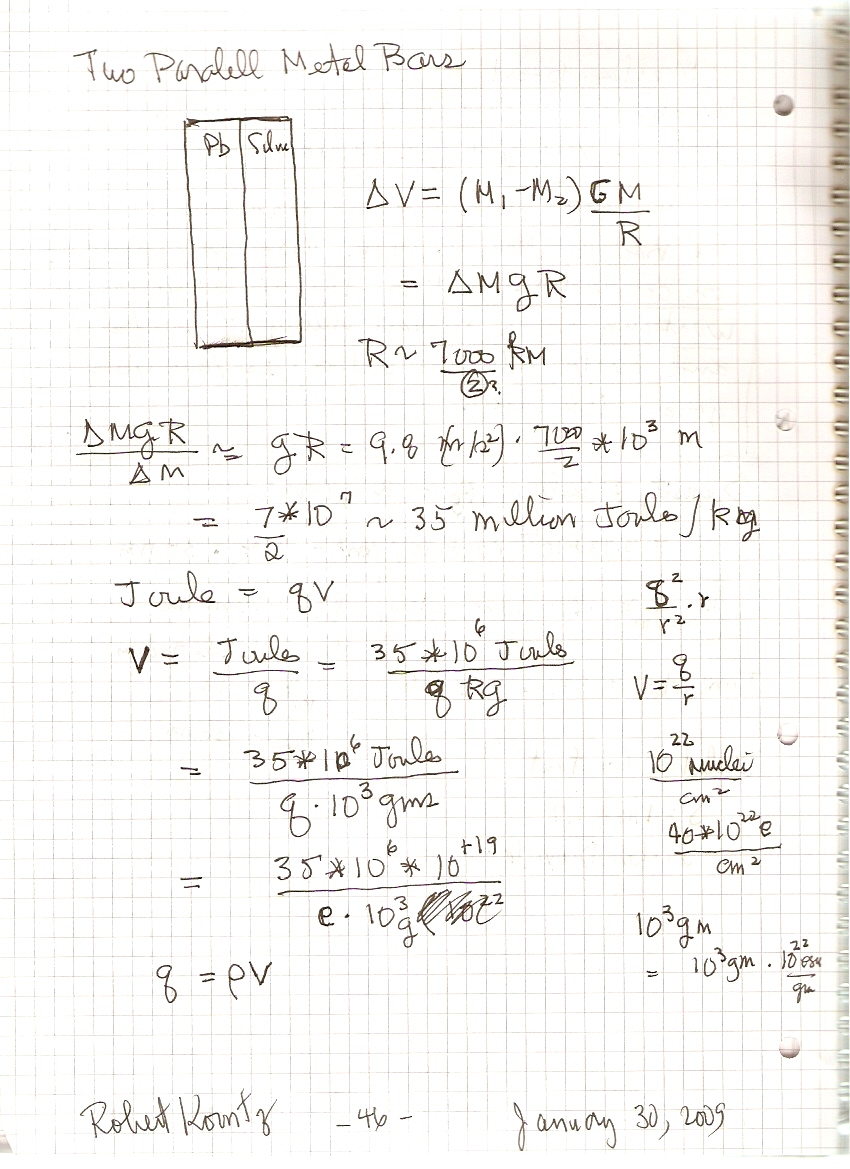 Two Paralell Metal Bars
Pb Silve
ΔV = (M₁ - M₂) GM/R
= ΔM g R
R ~ 7000/② km ?
ΔMgR/ΔM ≃ gR = 9.8 (m/s²) · 7000/2 * 10³ m
= 7/2 * 10⁷ ~ 35 million Joules/kg
Joule = qV
q²/r² · r
V = Joules/q = 35*10⁶ Joules/q kg
V = q/r
= 35*10⁶ Joules/q · 10³ gms
10²² nuclei/cm²
40*10²² e/cm²
= 35*10⁶ * 10⁺¹⁹/e · 10³ g
10³ gm
= 10³ gm · 10²² esu/gm
q = ρV
Robert Kountz - 46 - January 30, 2009